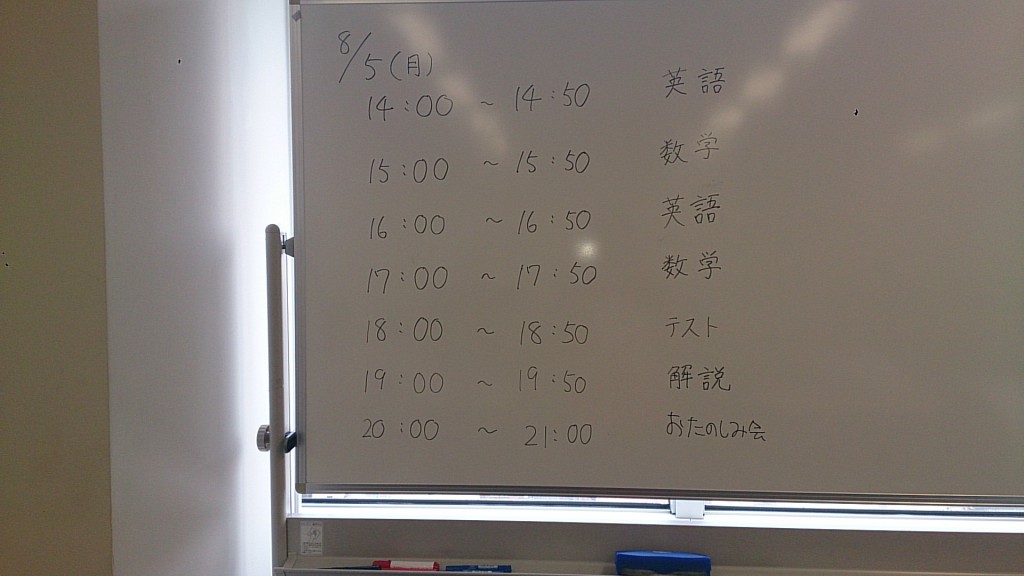 8/5(月)
14:00 ~ 14:50 英語
15:00 ~ 15:50 数学
16:00 ~ 16:50 英語
17:00 ~ 17:50 数学
18:00 ~ 18:50 テスト
19:00 ~ 19:50 解説
20:00 ~ 21:00 おたのしみ会